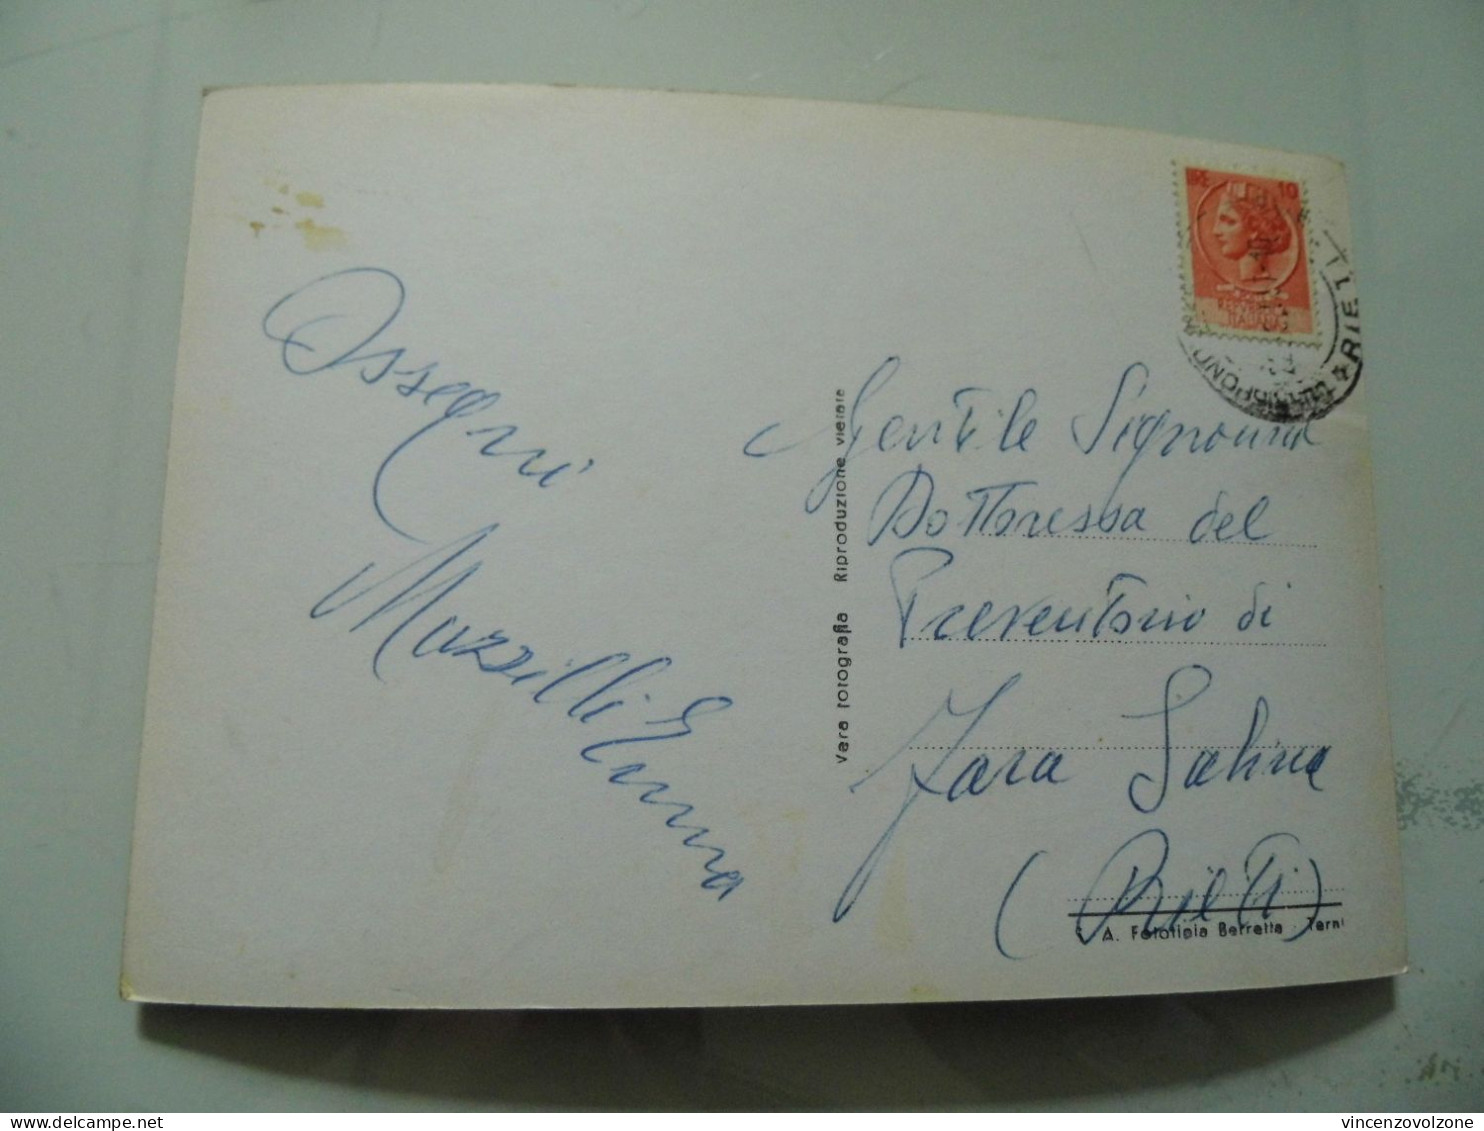 Ossequi
Mazzilli Emma
Vera fotografia Riproduzione vietata
Gentile Signorina
Dottoressa del
Preventorio di
Fara Sabina
(Rieti)
S. A. Fototipia Berretta - Terni
LIRE 10
REPUBBLICA
ITALIANA
RIETI
vincenzovolzone